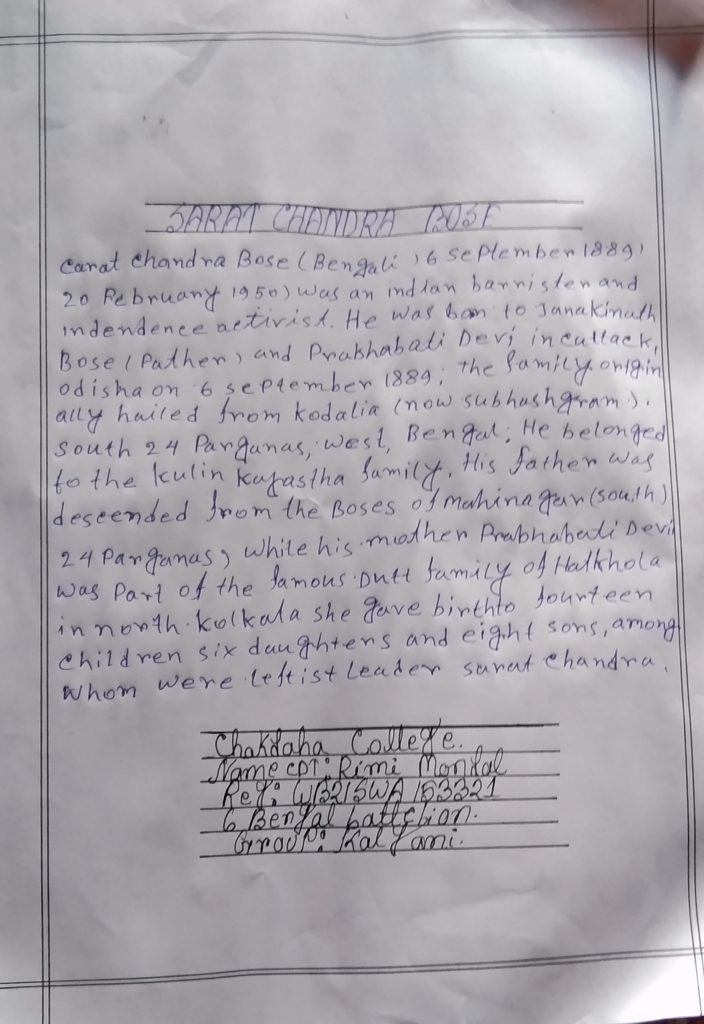 SARAT CHANDRA BOSE
Carat Chandra Bose (Bengali 16 September 1889)
20 February 1950) was an indian barrister and
indendence activist. He was bon to Janakinath
Bose (Father) and Prabhabati Devi in cuttack,
odisha on 6 september 1889; the family origin
ally hailed from Kodalia (now subhashgram).
south 24 Parganas, west, Bengal; He belonged
to the kulin Kayastha family. His father was
descended from the Boses of Mahinagar (south)
24 Parganas, while his mother Prabhabati Devi
was Part of the famous Dutt family of Hatkhola
in north kolkata she gave birthto fourteen
children six daughters and eight sons, among
whom were leftist leader sarat chandra.
Chakdaha College.
Name CDT: Rimi Mondal
Reg: WB21SWA153321
6 Bengal battelion.
Group: Kalyani.